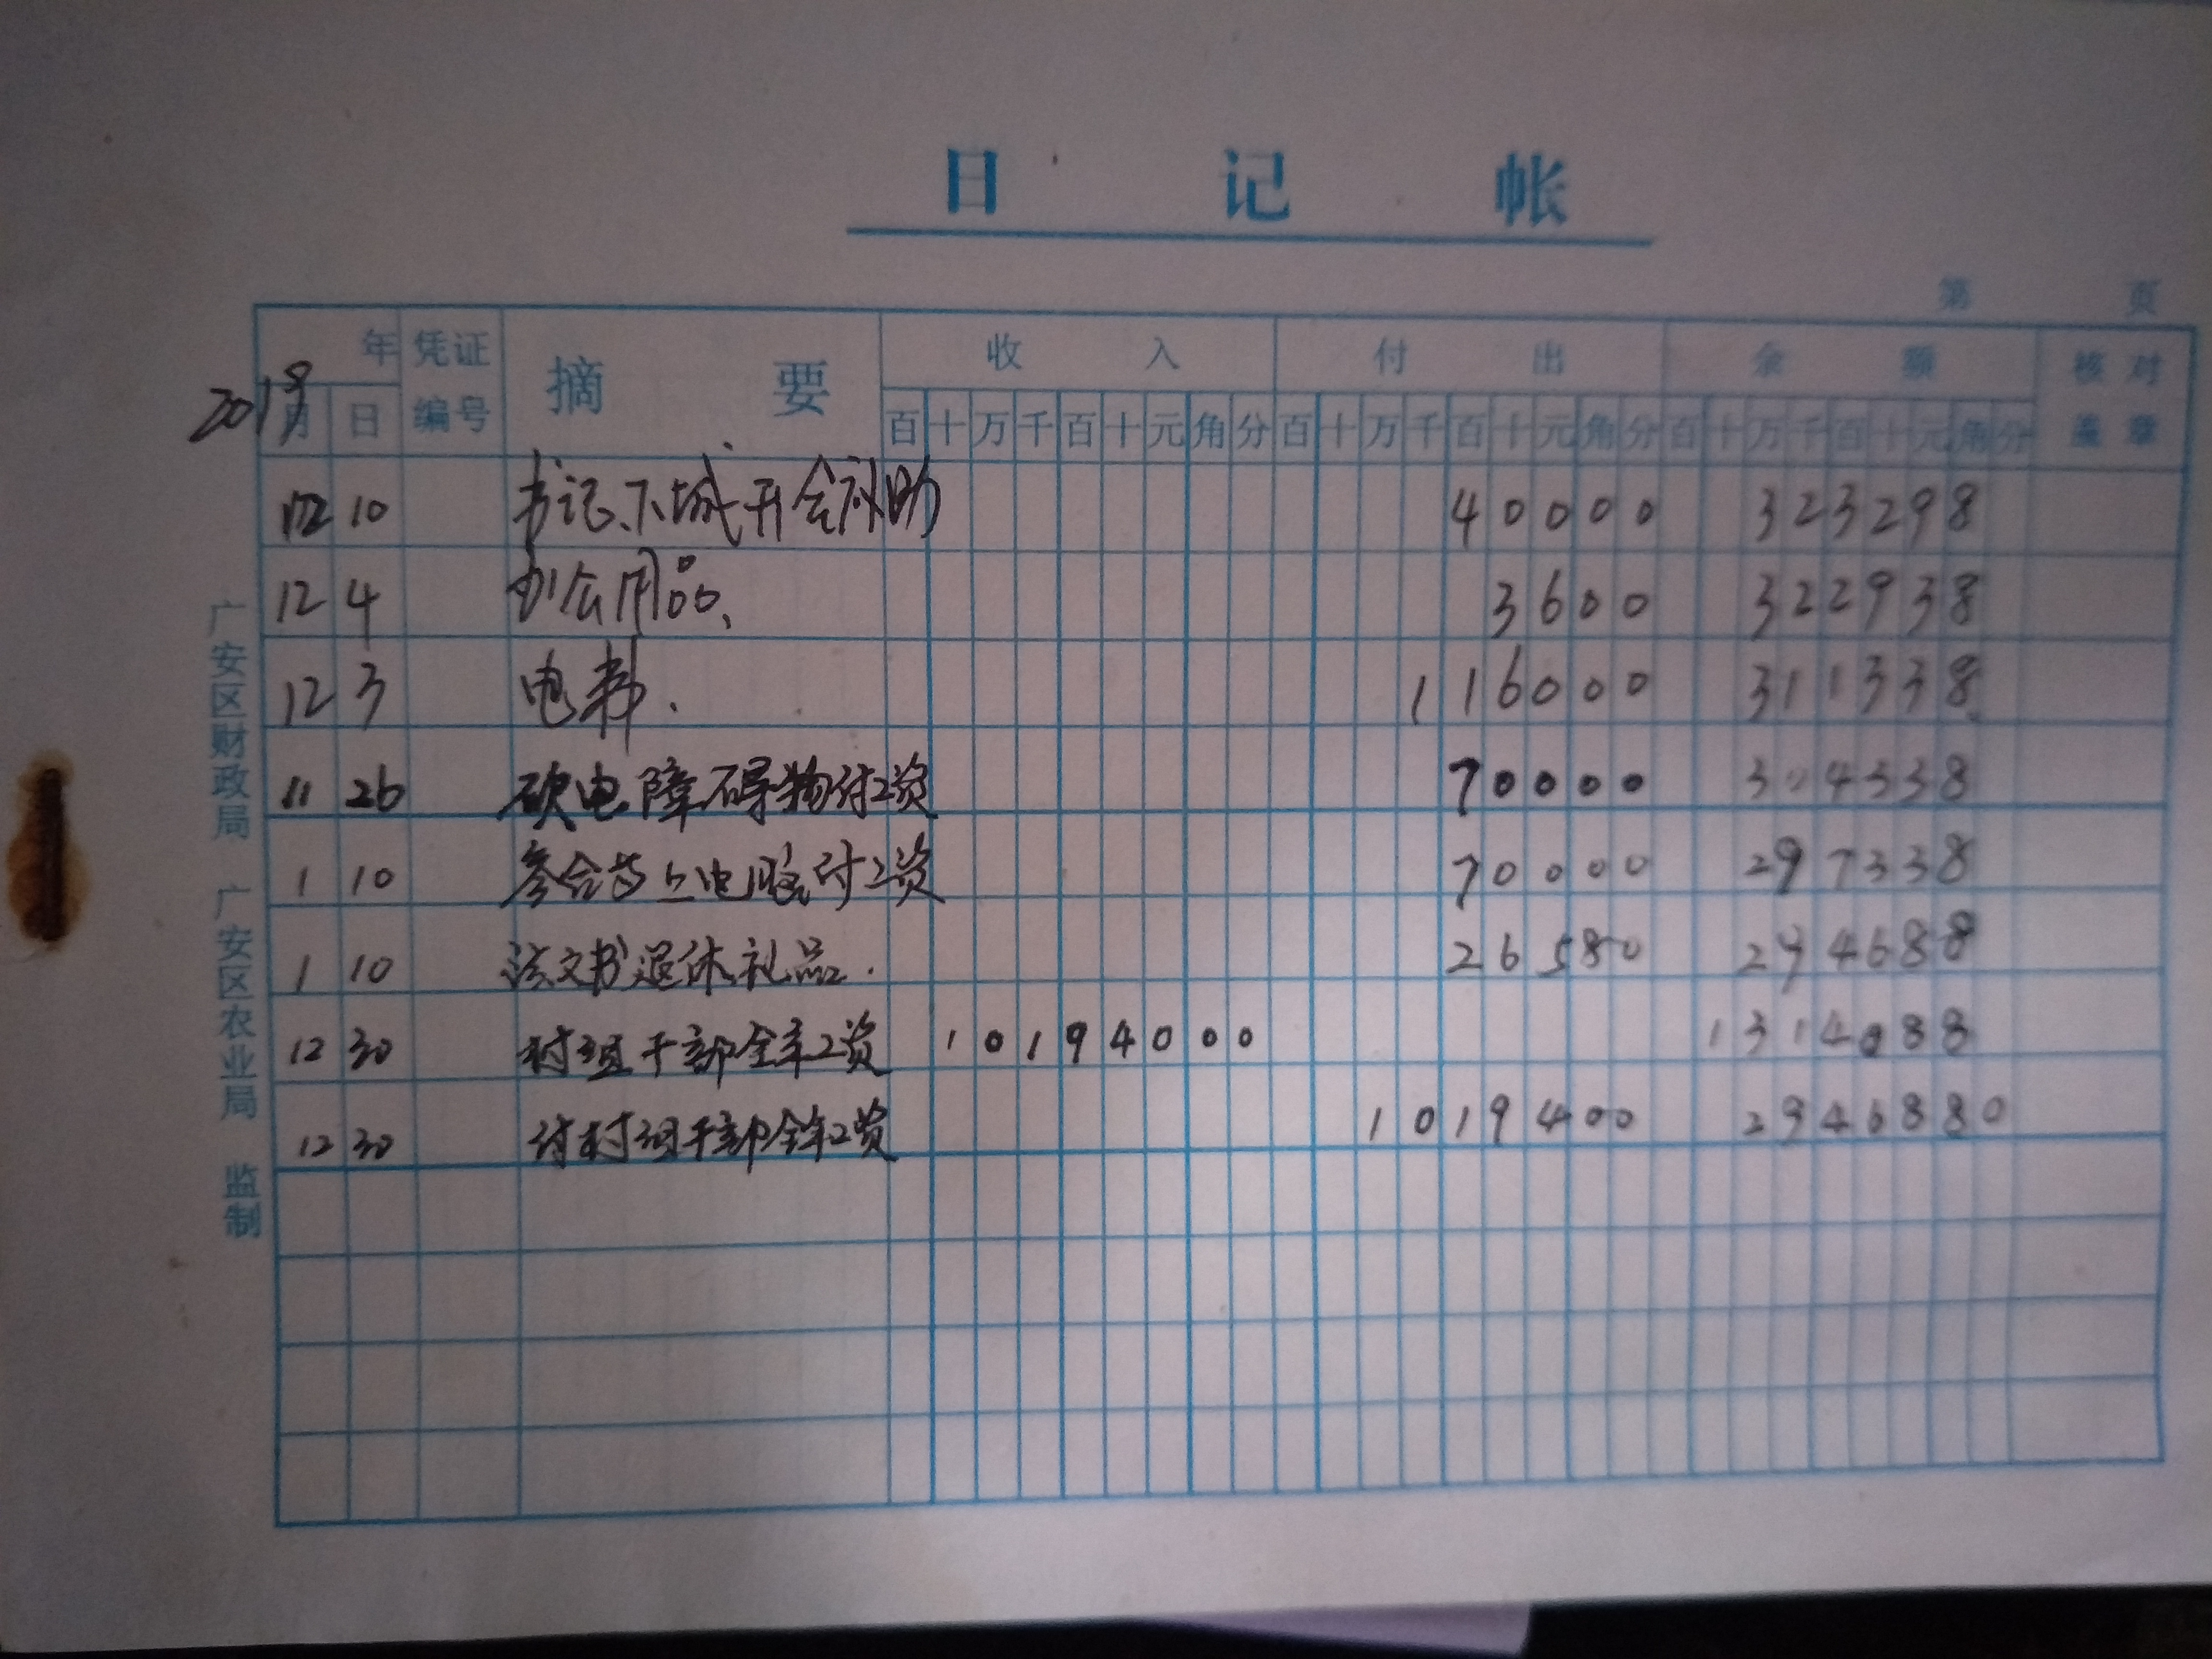 日记帐
第 页
年 凭证 摘要 收入 付出 余额 核对
2018 月 日 编号 百十万千百十元角分 百十万千百十元角分 百十万千百十元角分 盖章
12 10 书记下城开会补助 40000 323298
12 4 办公用品、 3600 322938
12 3 电费. 116000 311338
11 26 砍电障碍物付工资 70000 304338
1 10 参合 上电脑付工资 70000 297338
1 10 文书退休礼品. 26580 294688
12 30 村组干部全年工资 10194000 1314088
12 30 付村组干部全年工资 1019400 2946880
广安区财政局 广安区农业局 监制